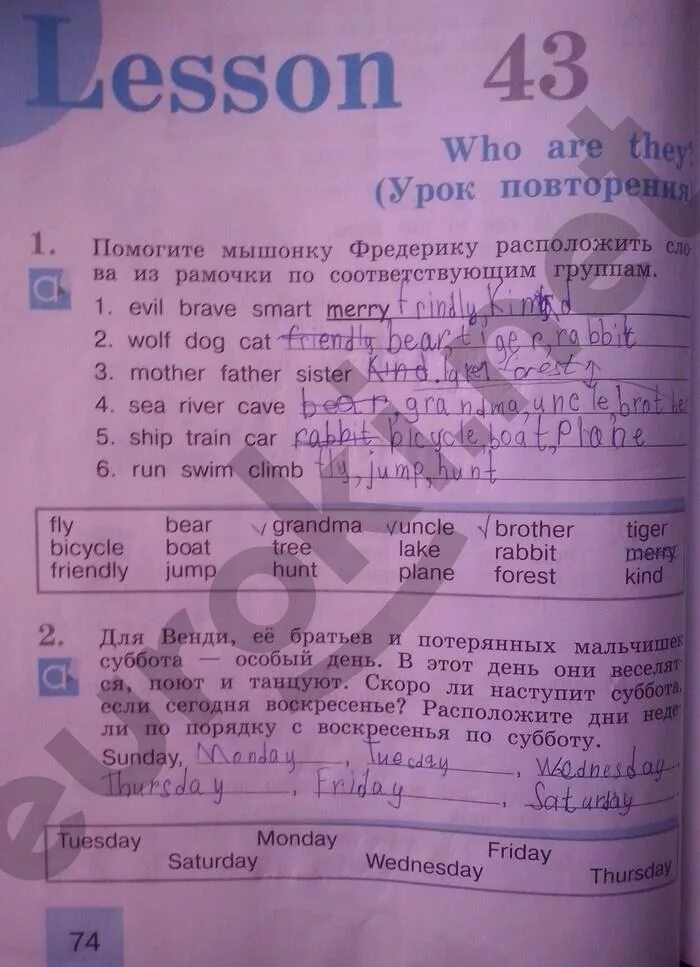 Lesson 43
Who are they?
(Урок повторения
1. Помогите мышонку Фредерику расположить сло-
ва из рамочки по соответствующим группам.
1. evil brave smart merry frindly, kind
2. wolf dog cat friendly bear, tiger, rabbit
3. mother father sister kind, lake forest
4. sea river cave bear, grandma, uncle, brother
5. ship train car rabbit bicycle, boat, plane
6. run swim climb fly, jump, hunt
fly bear grandma uncle brother tiger
bicycle boat tree lake rabbit merry
friendly jump hunt plane forest kind
2. Для Венди, её братьев и потерянных мальчишек
суббота — особый день. В этот день они веселят-
ся, поют и танцуют. Скоро ли наступит суббота,
если сегодня воскресенье? Расположите дни неде-
ли по порядку с воскресенья по субботу.
Sunday, Monday, Tuecday, Wednesday
Thursday, Friday, Saturday
Tuesday Monday Friday
Saturday Wednesday Thursday
74
euroki.net